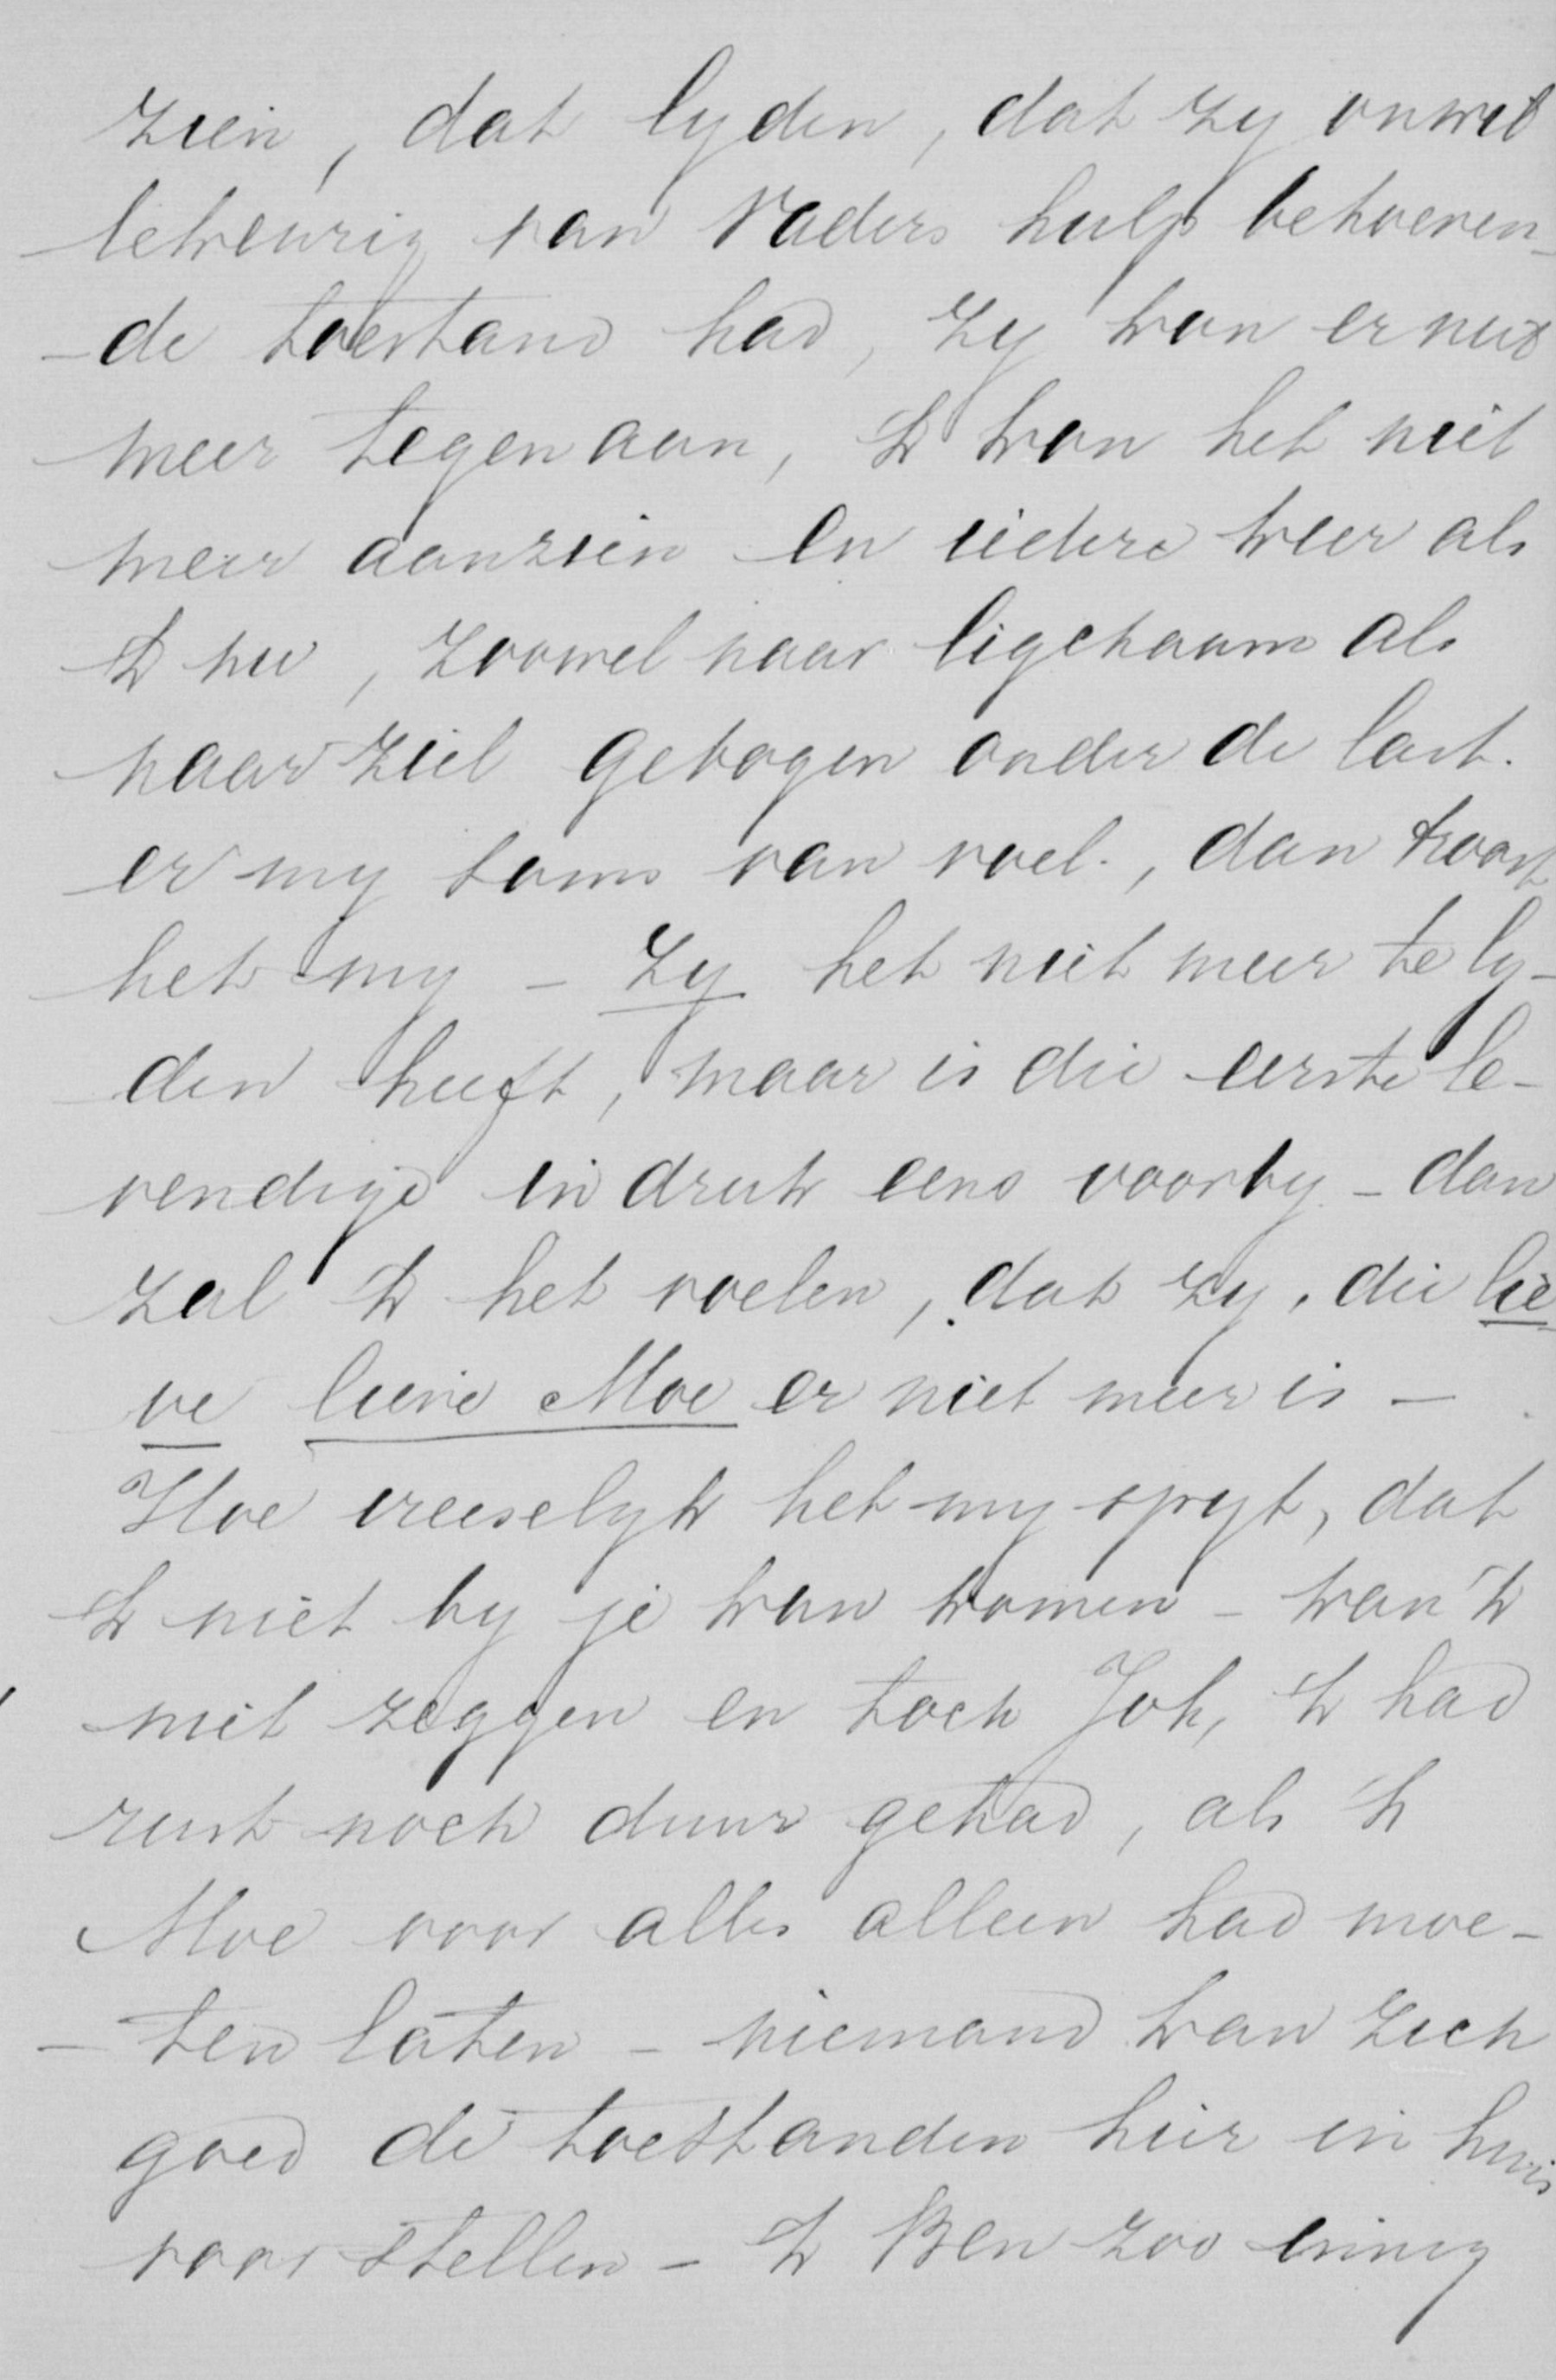 zien, dat lyden, dat zy onwil
lekeurig van Vaders hulp behoeven-
-de toestand had, zy kon er niet
meer tegen aan, 'k kon het niet
meer aanzien en iedere keer als
'k nu, zoowel naar ligchaam als
naar ziel gebogen onder de last.
er my soms van voel., dan troost
het my - zy het niet meer te ly-
den heeft, maar is die eerste le-
vendige indruk eens voorby - dan
zal 'k het voelen, dat zy, die lie
ve lieve Moe er niet meer is -
Hoe vreeselyk het my spyt, dat
'k niet by je kan komen - kan 'k
niet zeggen en toch Joh, 'k had
rust noch duur gehad, als 'k
Moe voor alles alleen had moe-
- ten laten - niemand kan zich
goed de toestanden hier in huis
voorstellen - 'k Ben zoo innig